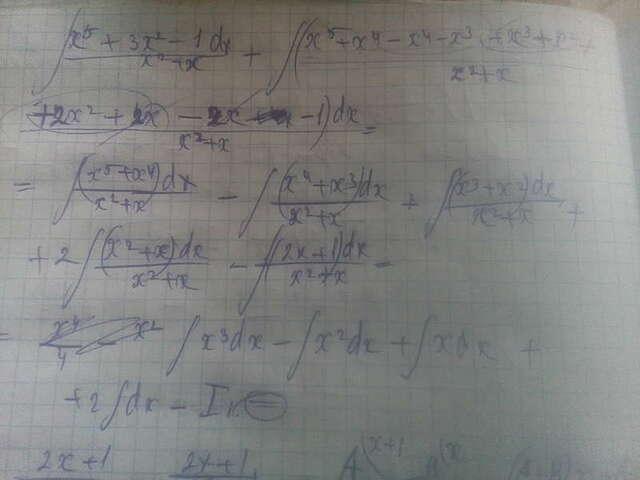 ∫ (x⁵ + 3x² − 1 dx)/(x² + x) + ∫ (x⁵ + x⁴ − x⁴ − x³ + x³ + x² +
+ 2x² + 2x − 2x − 1)dx / (x² + x) =
= ∫ (x⁵ + x⁴)dx/(x² + x) − ∫ (x⁴ + x³)dx/(x² + x) + ∫ (x³ + x²)dx/(x² + x) +
+ 2 ∫ (x² + x)dx/(x² + x) − ∫ (2x + 1)dx/(x² + x) =
= x⁴/4 − x² ∫ x³dx − ∫ x²dx + ∫ xdx +
+ 2∫dx − Iк =
2x + 1 2x + 1 A(x+1 B(x